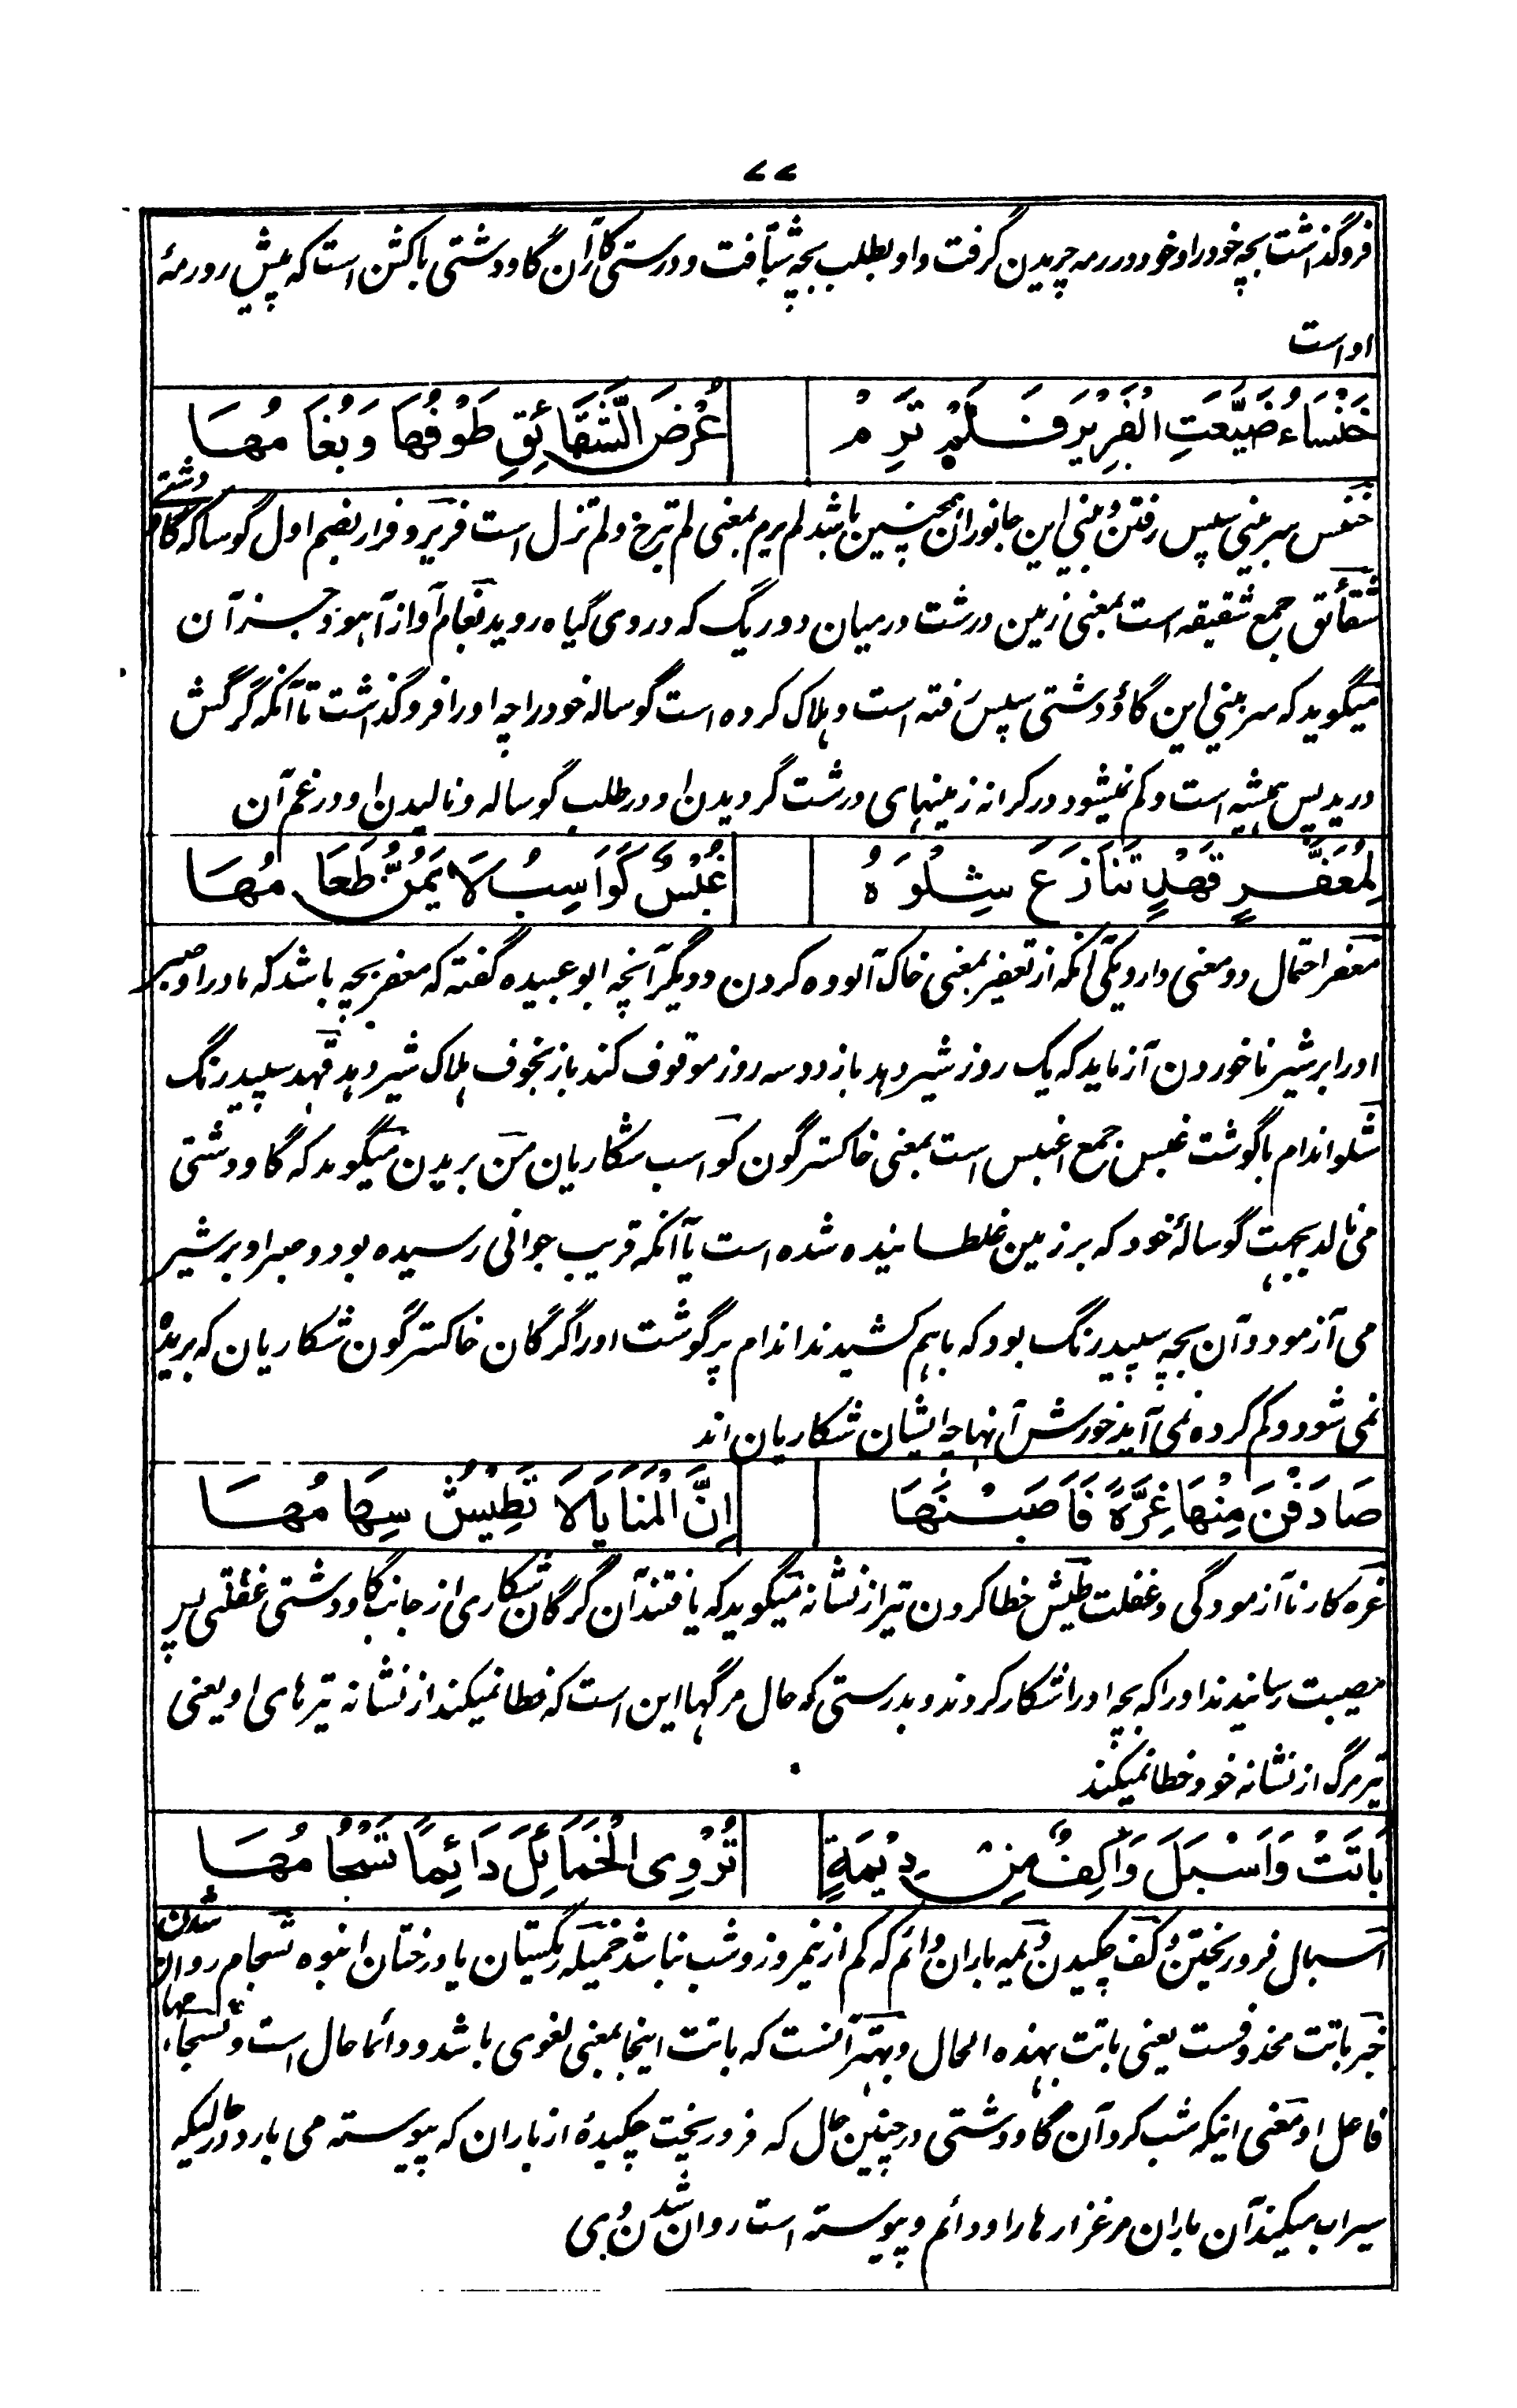 ۷۷
فروگذاشت بچه خود را و خود در رمه چریدن گرفت و او بطلب بچه شتافت و درستی کار آن گاو دشتی باکشن است که پیش رو رمهٔ
او است
خَنْسَاءُ ضَيَّعَتِ الْفَرِيْرَ فَلَمْ تَرِمْ
عُرْضَ الشَّقَائِقِ طَوْفُهَا وَبُغَامُهَا
خنس سر بینی سپس رفتن و بینی این جانوران همچنین باشد لم یرم بمعنی لم تبرح و لم تزل است فریر و فرار بضم اول گوساله گاو دشتے
شقائق جمع شقیقه است بمعنی زمین درشت درمیان دو ریگ که در وی گیاه روید بغام آواز آهو و جز آن
میگوید که سر بینی این گاؤ دشتی سپس رفته است و هلاک کرده است گوساله خود را چه او را فروگذاشت تا آنکه گرگش
درید پس همیشه است و کم نمیشود در کرانه زمینهای درشت گردیدن او در طلب گوساله و نالیدن او در غم آن
لِمُعَفَّرٍ قَهْدٍ تَنَازَعَ شِلْوَهُ
غُبْسٌ كَوَاسِبُ لَا يُمَنُّ طَعَامُهَا
معفر احتمال دو معنی دارد یکی آنکه از تعفیر بمعنی خاک آلوده کردن و دیگر آنچه ابو عبیده گفته که معفر بچه باشد که مادر او صبر
او را بر شیر نا خوردن آزماید که یک روز شیر دهد باز دو سه روز موقوف کند باز بخوف هلاک شیر دهد قهد سپید رنگ
شلو اندام با گوشت غبس جمع اغبس است بمعنی خاکستر گون کواسب شکاریان من بریدن میگوید که گاو دشتی
می نالد بجهت گوسالهٔ خود که بر زمین غلطانیده شده است یا آنکه قریب جوانی رسیده بود و صبر او بر شیر
می آزمود و آن بچه سپید رنگ بود که باهم کشیدند اندام پر گوشت او را گرگان خاکستر گون شکاریان که بریده
نمی شود و کم کرده نمی آید خورش آنها چه ایشان شکاریان اند
صَادَفْنَ مِنْهَا غِرَّةً فَاَصَبْنَهَا
اِنَّ الْمَنَايَا لَا تَطِيْشُ سِهَامُهَا
غره کار نا آزمودگی و غفلت طیش خطا کردن تیر از نشانه میگوید که یافتند آن گرگان شکاری از جانب گاو دشتی غفلتی پس
مصیبت رسانیدند او را که بچه او را شکار کردند و بدرستی که حال مرگها این است که خطا نمیکند از نشانه تیرهای او یعنی
تیر مرگ از نشانه خود خطا نمیکند
بَاتَتْ وَاَسْبَلَ وَاكِفٌ مِنْ دِيْمَةٍ
تُرْوِى الْخَمَائِلَ دَائِمًا تَسْجَامُهَا
اسبال فرو ریختن وکف چکیدن دیمه باران دائم که کم از نیمروز و شب نباشد خمیله ریگستان یا درختان انبوه تسجام روان شدن
خبر باتت محذوفست یعنی باتت بهذه الحال و بهتر آنست که باتت اینجا بمعنی لغوی باشد و دائما حال است و تسجامها
فاعل او معنی اینکه شب کرد آن گاو دشتی در چنین حال که فرو ریخت چکیدهٔ از باران که پیوسته می بارد در حالیکه
سیراب میکند آن باران مرغزارها را و دائم و پیوسته است روان شدن وی